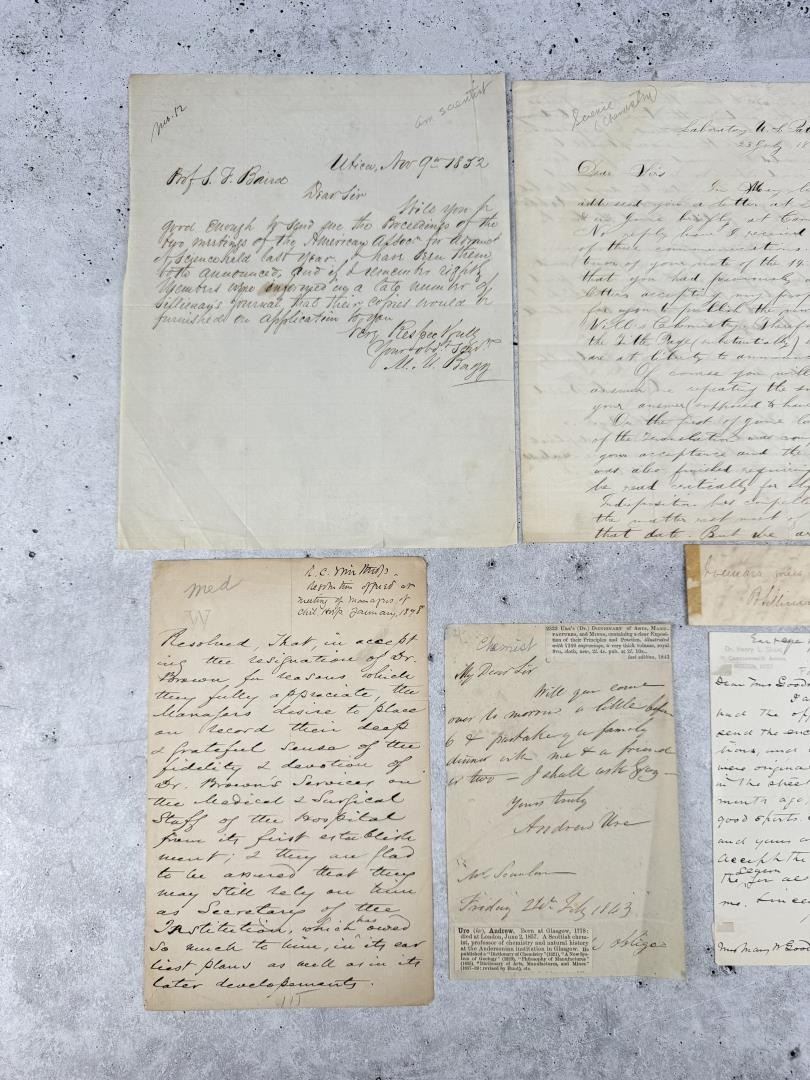 No. 52
am scientist
Utica, Nov 9th 1852
Prof S. F. Baird
Dear Sir
Will you be
good enough to send me the Proceedings of the
two meetings of the American Assocn for Advmnt
of Science held last year. I have seen them
both announced, and if I remember rightly
members were informed in a late number of
Silliman's Journal that their copies would be
furnished on application to you
Very Respectfully
Your obt Servt
M. M. Bagg
Science
(Chemistry)
Laboratory U. S. Pat
23 July 18
Dear Sirs
In May
addressed you a letter at
&
No reply have I received
of these communications
of your note of the 14
that you had previously
letter accepting my
for you to publish the
Will's Chemistry.
the 2th Page (substantially)
are at liberty to announce
Of course you will
answer repeating the
your answer (supposed to have
On the first of June
of the Translation was
your acceptance and the
was also finished requiring
be read critically for
Indisposition has
the matter rest most of
that date. But we are
med
W
R. C. Winthrop.
Resolution offered at
meeting of Managers of
Chil. Hosp. January, 1878
Resolved, That, in accept
ing the resignation of Dr.
Brown, for reasons which
they fully appreciate, the
Managers desire to place
on record their deep
& grateful sense of the
fidelity & devotion of
Dr. Brown's services on
the Medical & Surgical
Staff of the Hospital
from its first establish
ment; & they are glad
to be assured that they
may still rely on him
as Secretary of the
Institution, which has owed
so much to him, in its ear
liest plans as well as in its
later developements.
Chemist
2323 Ure's (Dr.) Dictionary of Arts, Manu-
factures, and Mines, containing a clear Exposi-
tion of their Principles and Practice, illustrated
with 1240 engravings, a very thick volume, royal
8vo, cloth, new, 2l. 4s. pub. at 2l. 10s.,
2nd edition, 1843
My Dear Sir
Will you come
over to morrow a little before
6 & partake of a family
dinner with me & a friend
or two — I shall ask
Yours truly
Andrew Ure
Mr Scanlan
Friday 24th Feby 1843
Ure (ūr), Andrew. Born at Glasgow, 1778:
died at London, June 2, 1857. A Scottish chem-
ist, professor of chemistry and natural history
at the Andersonian institution in Glasgow. He
published a "Dictionary of Chemistry" (1821), "A New Sys-
tem of Geology" (1829), "Philosophy of Manufactures"
(1835), "Dictionary of Arts, Manufactures, and Mines"
(1837-39: revised by Hunt), etc.
oblige
Dr. Harry L. Shaw
Commonwealth Avenue
Boston, Mass
Dear Mrs Good
had the
send the enc
tions, and
were origina
in the
ments ago,
good
and yours
accept the
the
me. Sincer
Mrs Mary W Good